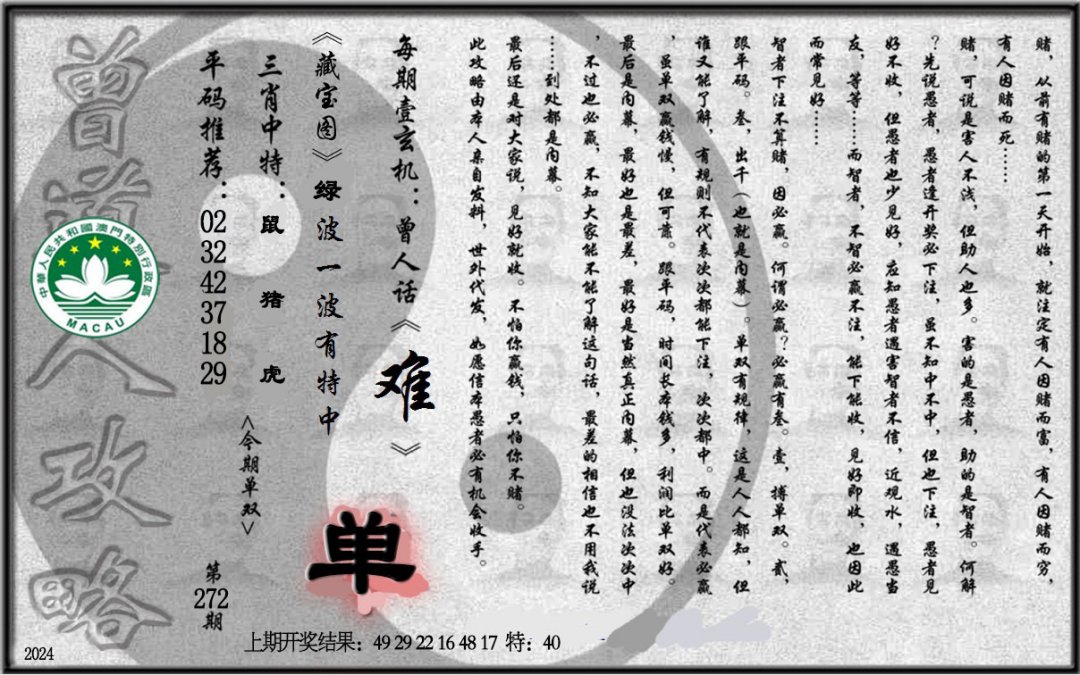 赌，从前有赌的第一天开始，就注定有人因赌而富，有人因赌而穷，
有人因赌而死……
赌，可说是害人不浅，但助人也多。害的是愚者，助的是智者。何解
？先说愚者，愚者逢开奖必下注，虽不知中不中，但也下注，愚者见
好不收，但愚者也少见好，应知愚者遇害智者不信，近观水，遇愚当
友，等等……而智者，不智必赢不注，能下能收，见好即收，也因此
而常见好……
智者下注不算赌，因必赢。何谓必赢？必赢有叁。壹，搏单双。贰，
跟平码。叁，出千（也就是内幕）。单双有规律，这是人人都知，但
谁又能了解，有规则不代表次次都能下注，次次都中。而是代表必赢
，虽单双赢钱慢，但可靠。跟平码，时间长本钱多，利润比单双好。
最后是内幕，最好也是最差，最好是当然真正内幕，但也没法次次中
，不过也必赢，不知大家能不能了解这句话，最差的相信也不用我说
……到处都是内幕。
最后还是对大家说，见好就收。不怕你赢钱，只怕你不赌。
此攻略由本人亲自发料，世外代发，如愿信本愚者必有机会收手。
每期壹玄机：曾人话《难》
《藏宝图》绿波一波有特中
三肖中特：鼠 猪 虎
平码推荐：02 32 42 37 18 29
<今期单双>
单
第272期
曾道人攻略
中華人民共和國澳門特別行政區
MACAU
上期开奖结果：49 29 22 16 48 17 特：40
2024